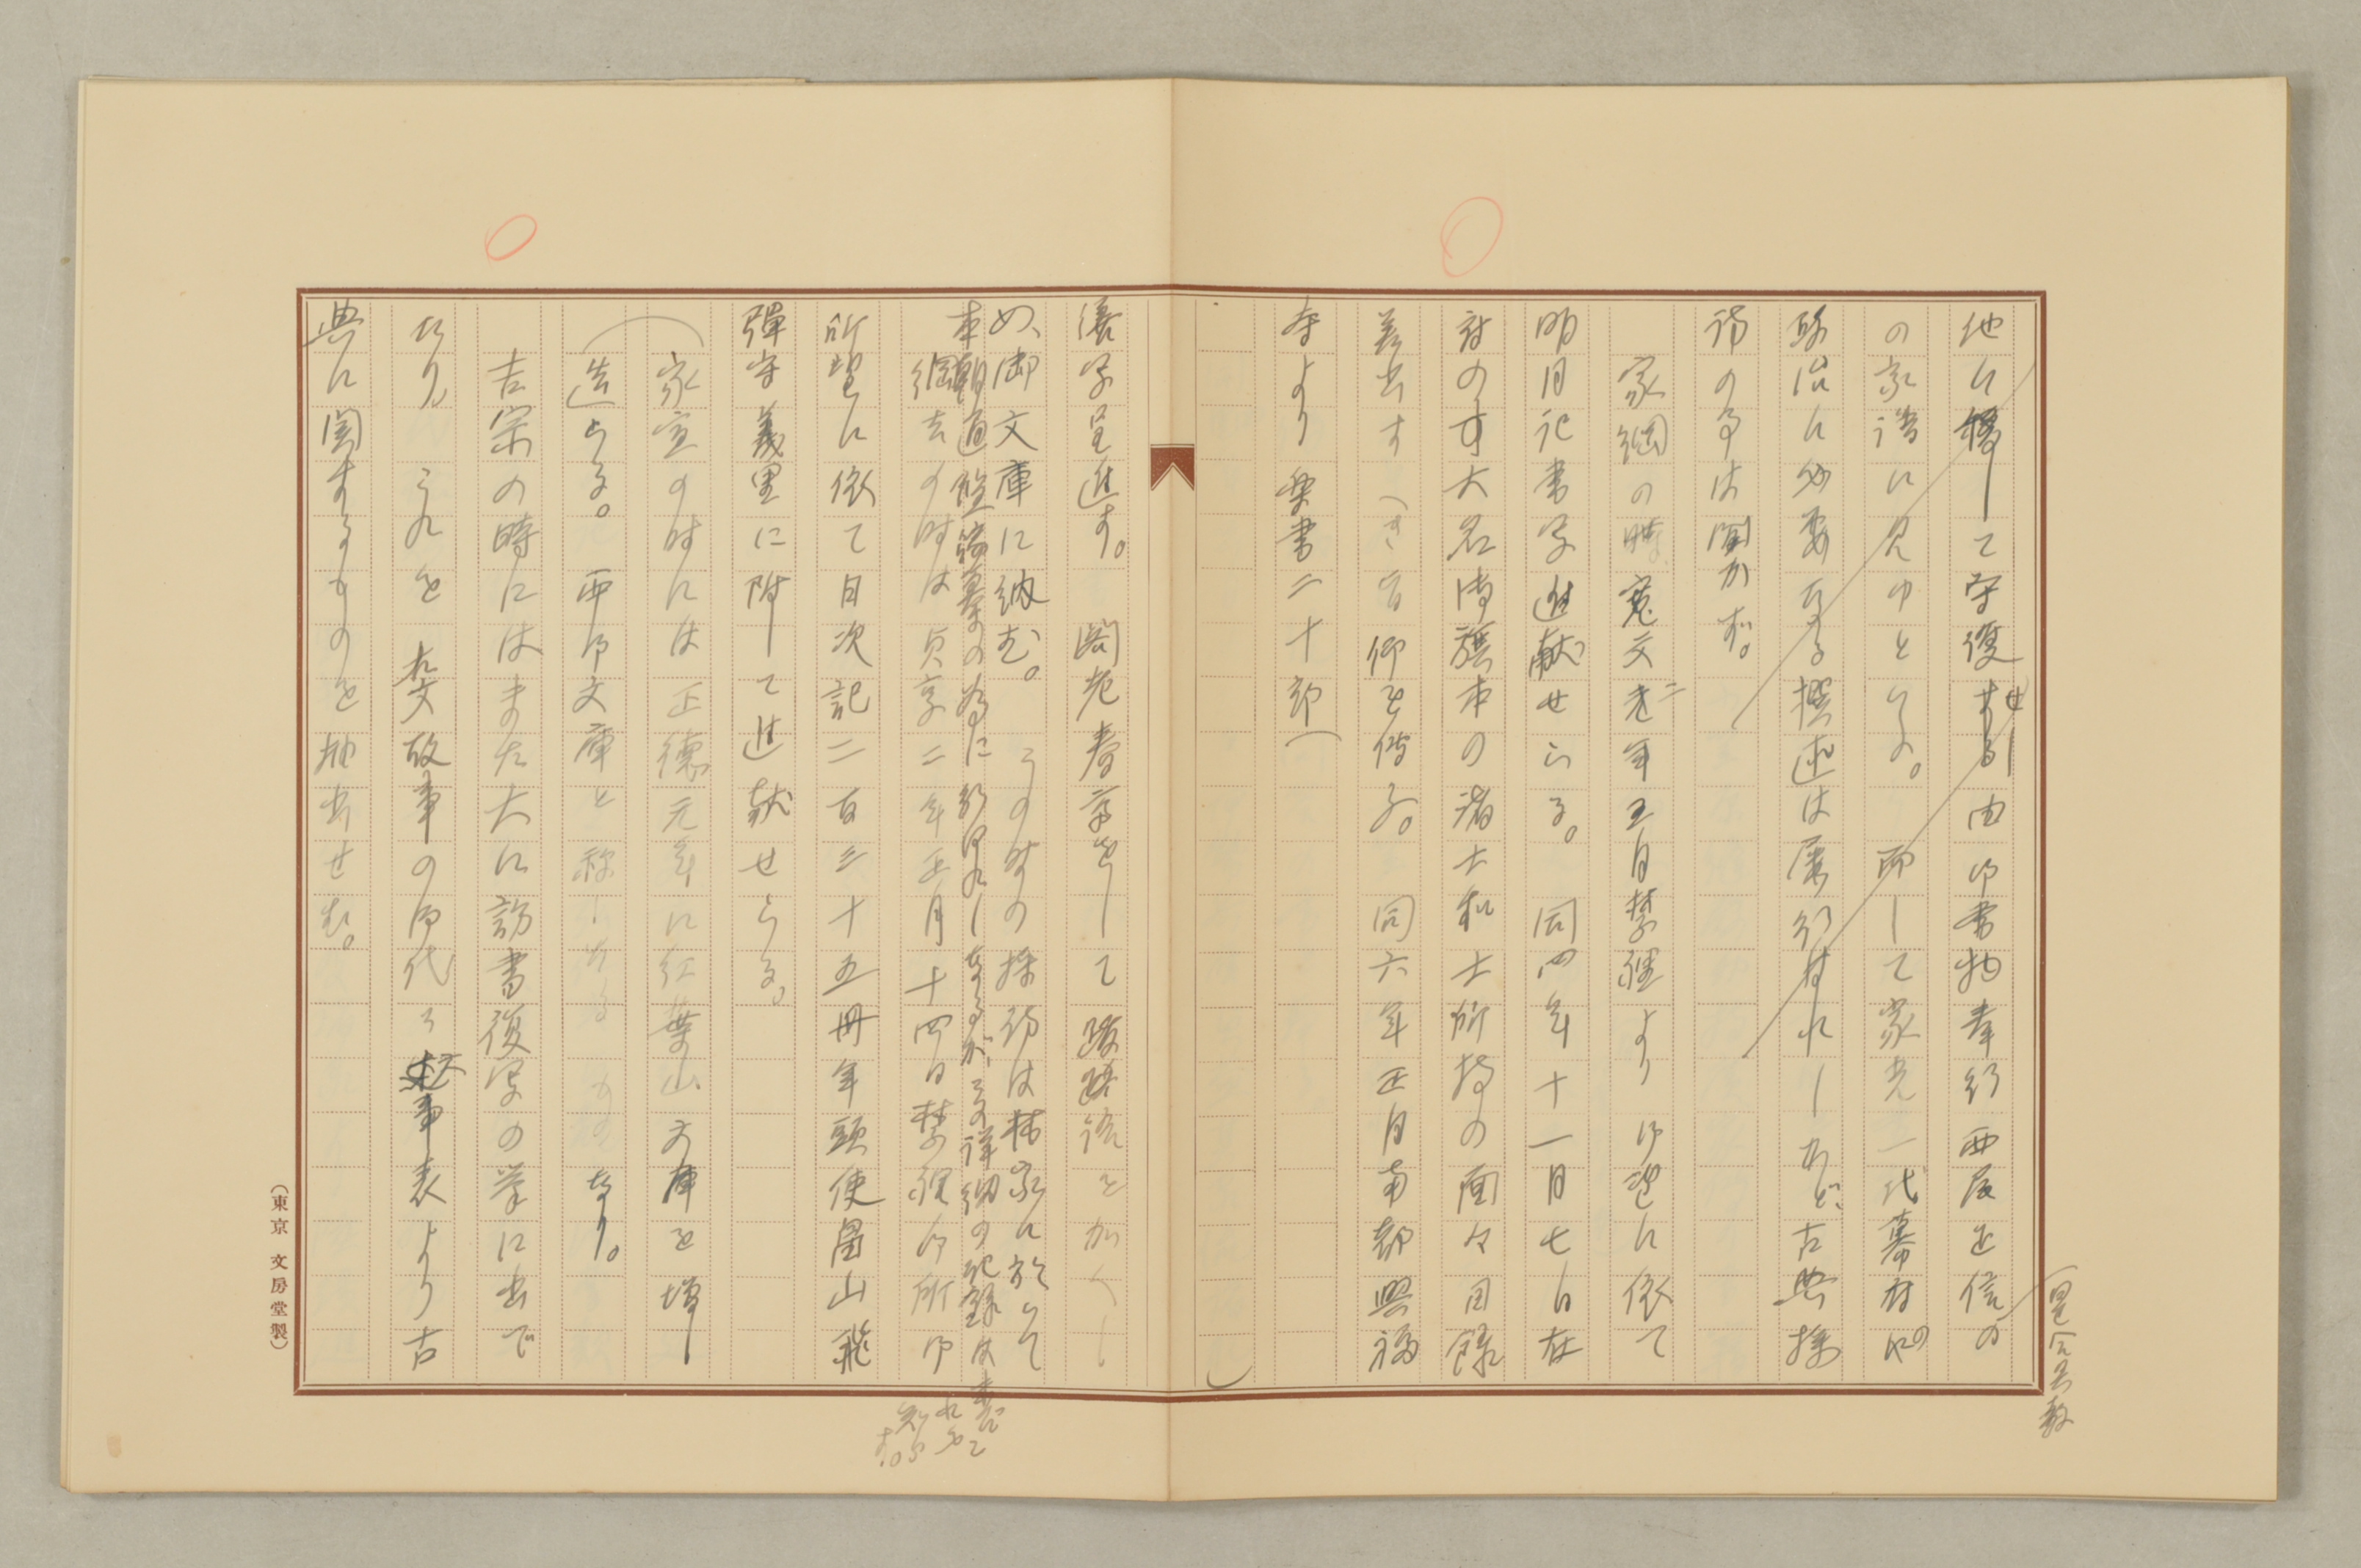 他に移して守復せし由御書物奉行西尾正信の
の家譜に見ゆといふ。而して家光一代幕府の
政治に必要なる撰述は屡行はれしかど、古典採
訪の事は聞かず。
家綱の時寛文二年五月禁裡より御望に依て
明月記書写進献せらる。同四年十一月七日在
府の大名溥旗本の諸士和士所持の面々目録
差出すべき旨仰を伝る。同六年正月南都興福
寺より楽書二十部(
写呈進す。関老寿斎をして跋語をかくし
め、御文庫に納む。この時の採訪は林家に於いて
本朝通鑑編纂の為に行はれしなるが、その詳細の記録は
綱吉の時は貞享二年正月十四日禁裡御所御
所望に依て日次記二百三十五冊年頭使畠山飛
弾守義里に附して進献せらる。
家宣の時には正徳元年に紅葉山文庫を増し
造らる。西御文庫と称しゐるものなり。
吉宗の時にはまた大に訪書復写の挙に出で
たり。これを右文故事の御代々文事表より古
典に関するものを抽出せむ。
(東京 文房堂製)